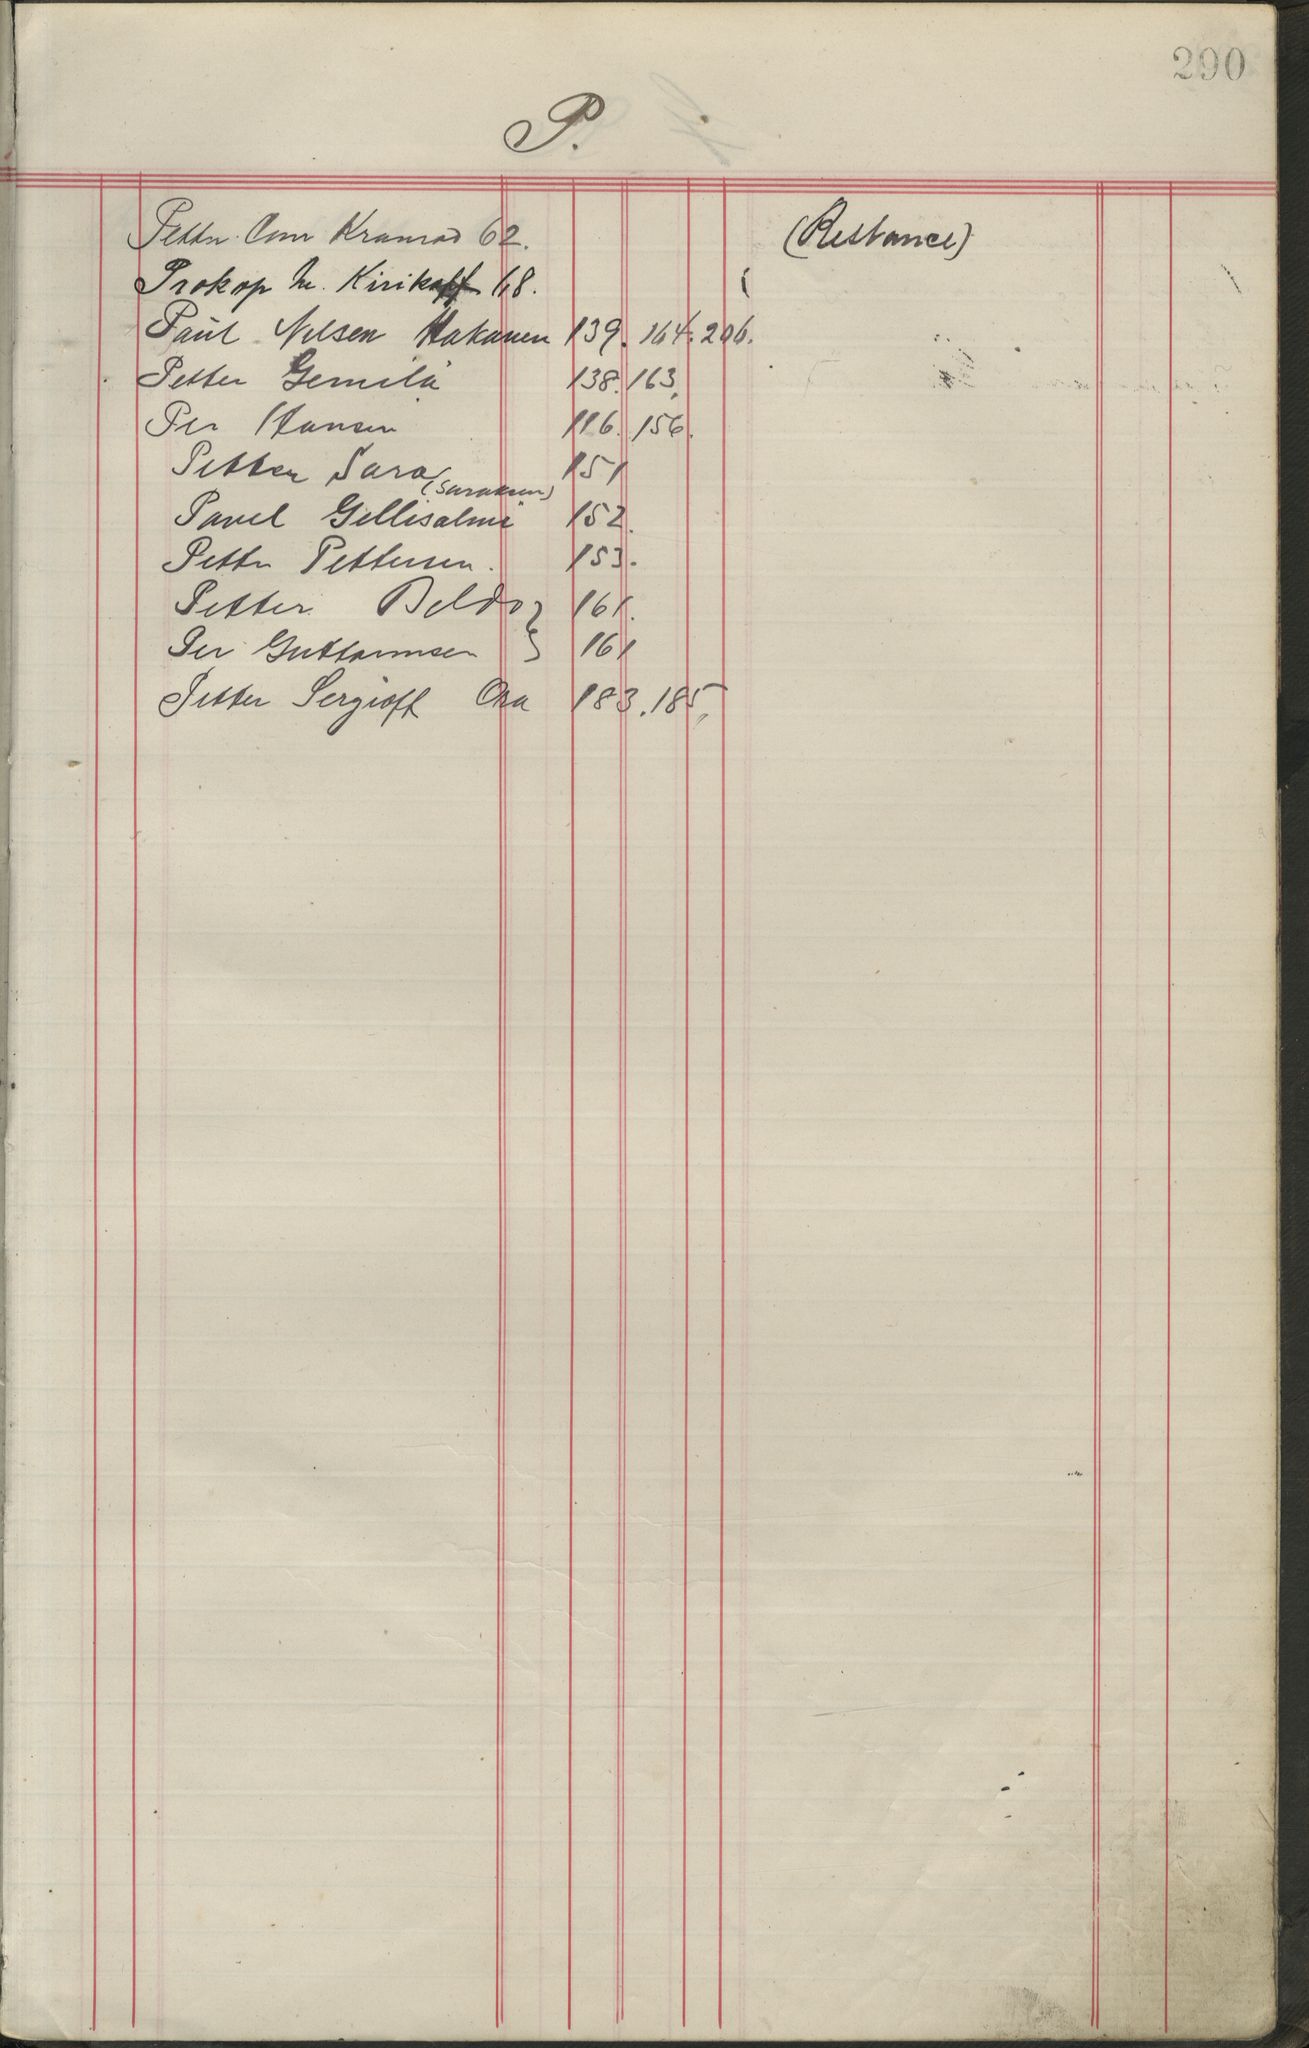 290
P.
Petter Om Kramrad 62. (Restance)
Prokop M. Kirikoff 68.
Paul Nilsen Hakanen 139. 164. 206.
Petter Gemilä 138. 163.
Per Hansen 116. 156.
Petter Sara 151
(Saraksen)
Pavel Gellisalmi 152.
Petter Pettersen. 153.
Petter Beldo } 161.
Per Guttormsen } 161
Petter Sergioff Ora 183. 185.